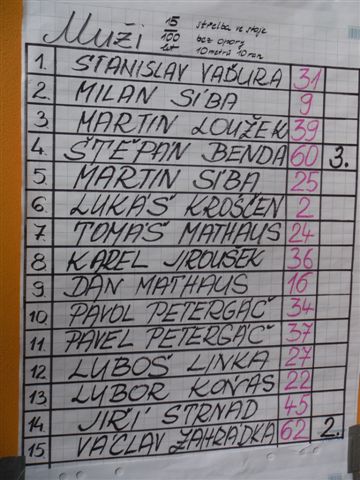 Muži 15 střelba ve stoje
100 bez opory
let 10 metrů 10 ran
1. STANISLAV VAŠURA 31
2. MILAN SÍBA 9
3. MARTIN LOUŽEK 39
4. ŠTĚPÁN BENDA 60 3.
5. MARTIN SÍBA 25
6. LUKÁŠ KROŠČEN 2
7. TOMÁŠ MATHAUS 24
8 KAREL JIROUŠEK 36
9. DAN MATHAUS 16
10 PAVOL PETERGÁČ 34
11 PAVEL PETERGÁČ 37
12 LUBOŠ LINKA 27
13 LUBOR KOŇAS 22
14 JIŘÍ STRNAD 45
15 VÁCLAV ZAHRÁDKA 62 2.